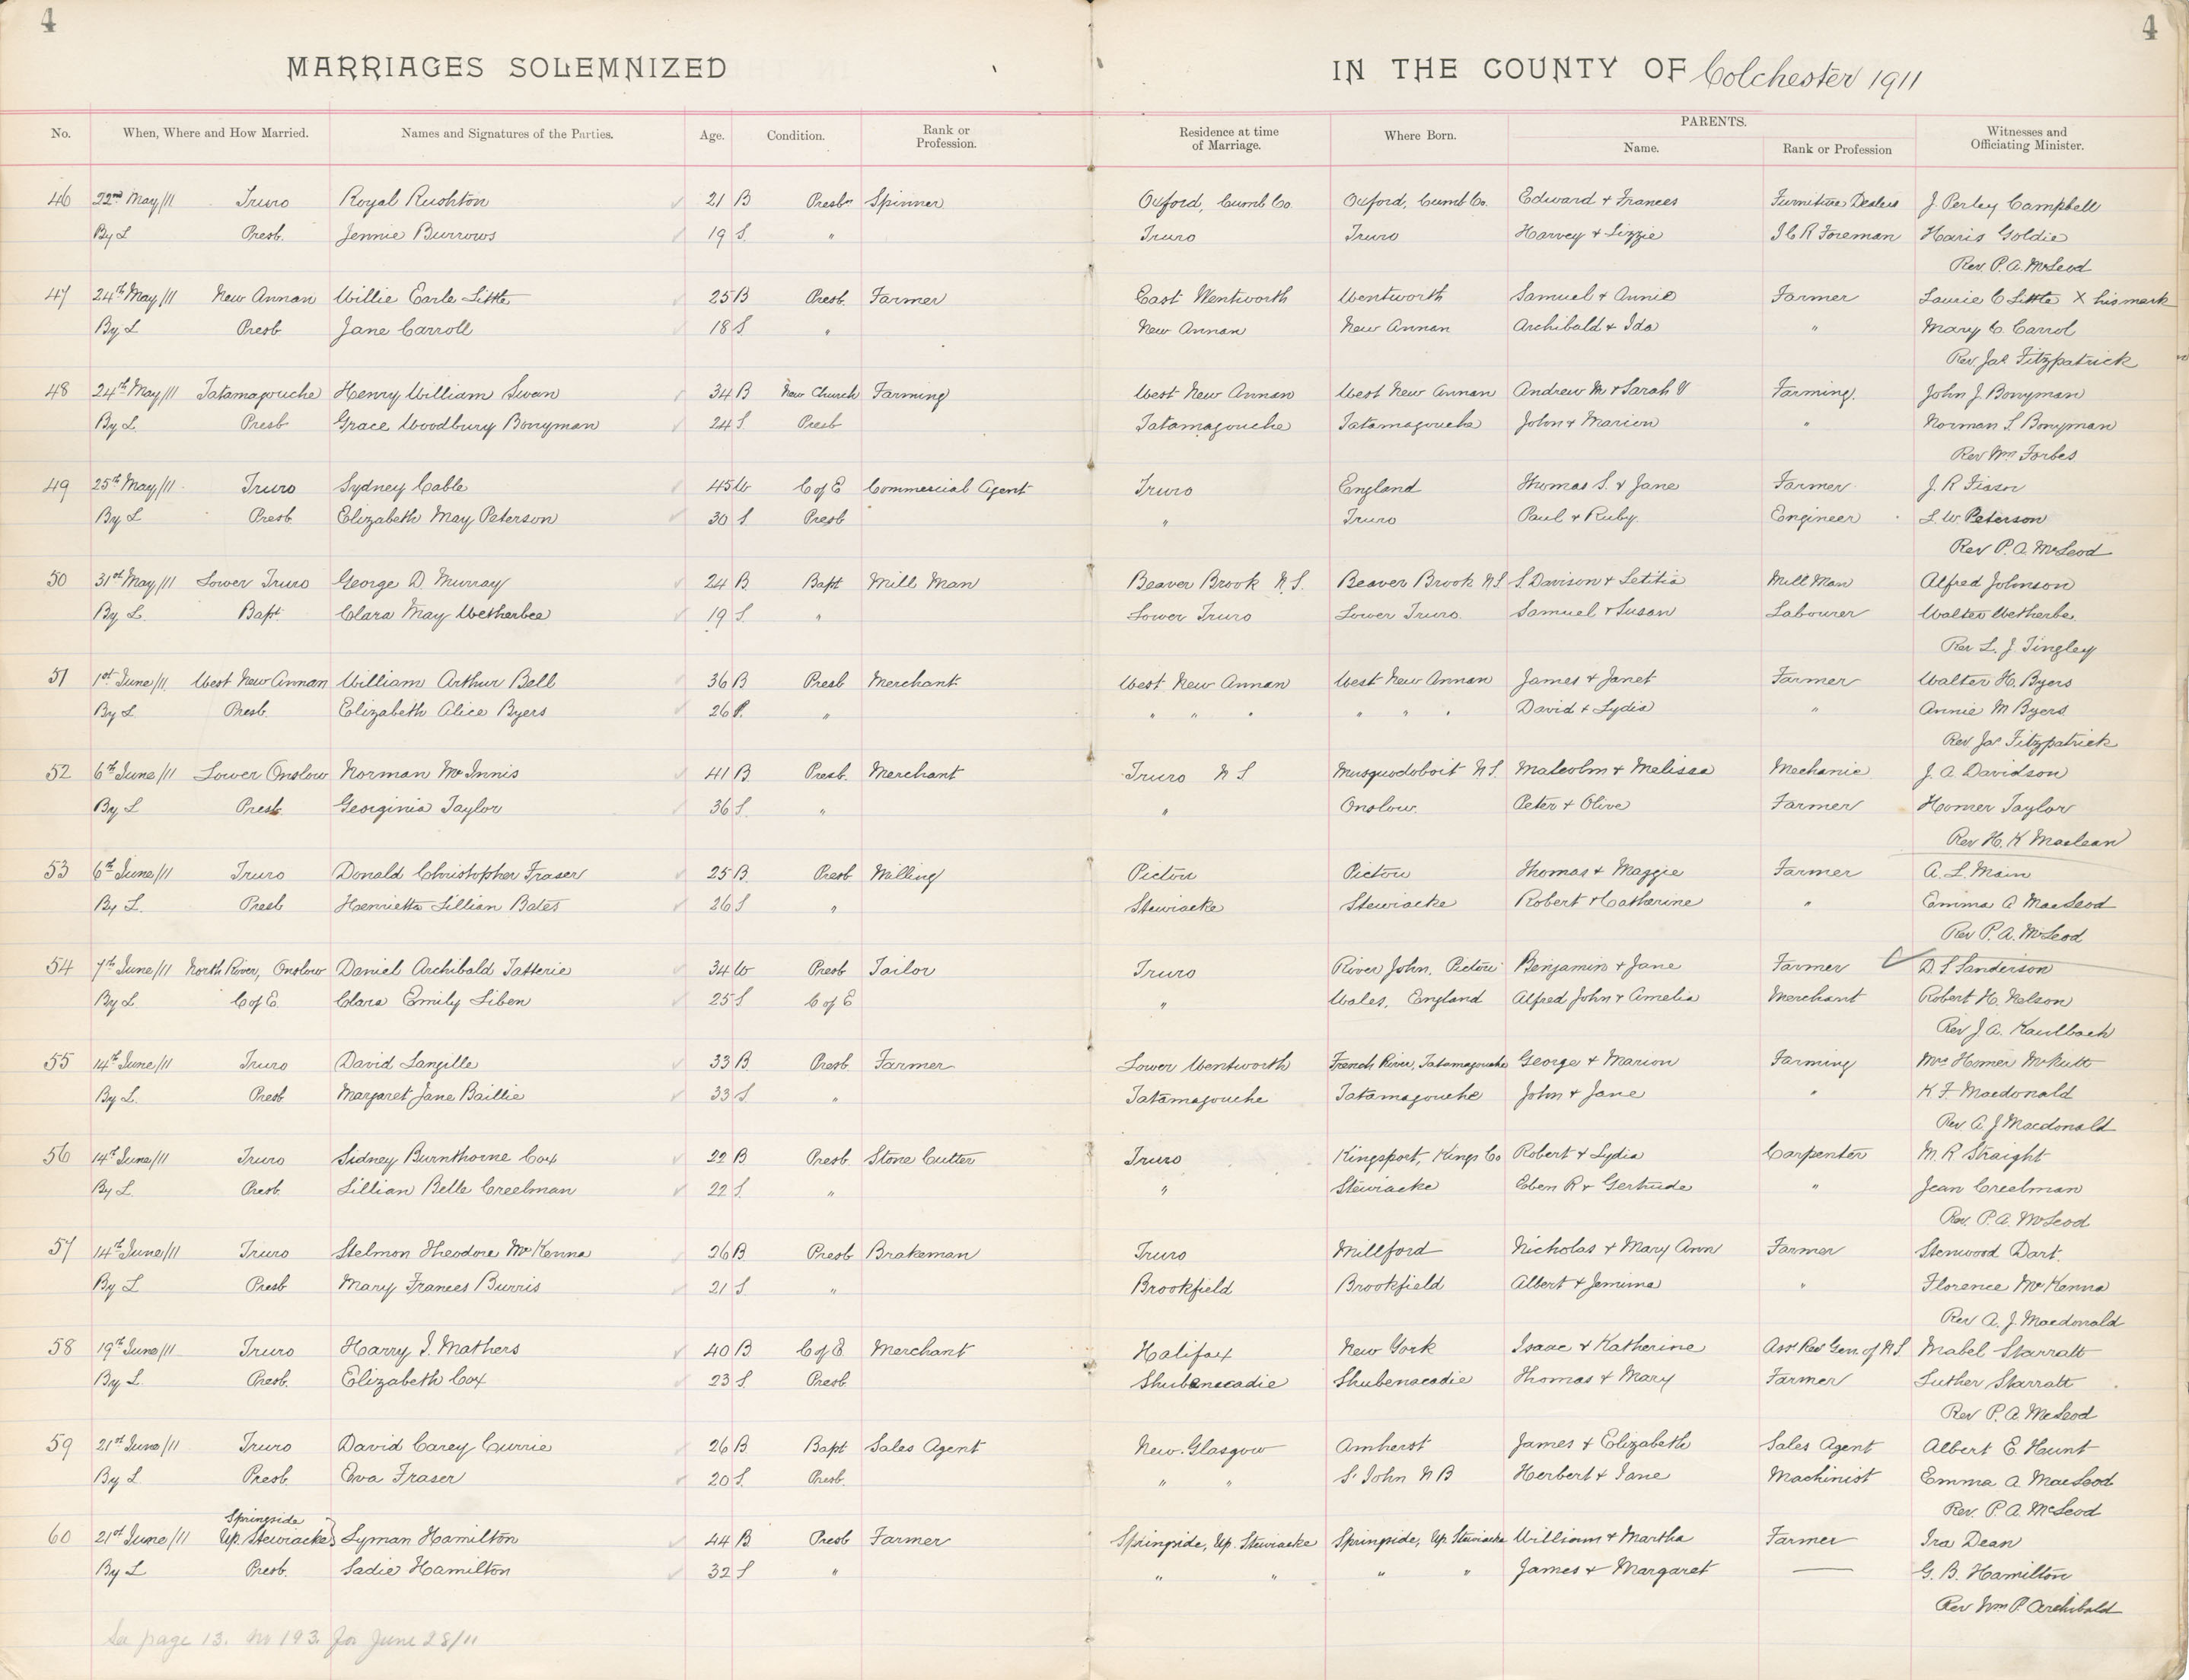 4 4
MARRIAGES SOLEMNIZED IN THE COUNTY OF Colchester 1911
No. When, Where and How Married. Names and Signatures of the Parties. Age. Condition. Rank or Profession. Residence at time of Marriage. Where Born. PARENTS. Name. Rank or Profession Witnesses and Officiating Minister.
46 22nd May/11 Truro Royal Rushton 21 B Presbn Spinner Oxford, Cumb Co. Oxford, Cumb Co. Edward + Frances Furniture Dealer J. Perley Campbell
By L Presb. Jennie Burrows 19 S. " Truro Truro Harvey + Lizzie I C R Foreman Haris Goldie
Rev. P. A. McLeod
47 24th May/11 New Annan Willie Earle Little 25 B Presb. Farmer East Wentworth Wentworth Samuel + Annie Farmer Laurie C Little X his mark
By L Presb Jane Carroll 18 S. " New Annan New Annan Archibald + Ida " Mary C. Carrol
Rev Jas Fitzpatrick
48 24th May/11 Tatamagouche Henry William Swan 34 B New Church Farming West New Annan West New Annan Andrew M + Sarah V Farming. John J. Bonyman
By L. Presb Grace Woodbury Bonyman 24 S. Presb Tatamagouche Tatamagouche John + Marion " Norman S. Bonyman
Rev Wm Forbes
49 25th May/11 Truro Sydney Cable 45 W C of E Commercial Agent Truro England Thomas S. + Jane Farmer J. R Fisson
By L Presb Elizabeth May Peterson 30 S. Presb " Truro Paul + Ruby. Engineer L. W Peterson
Rev P. A. McLeod
50 31st May/11 Lower Truro George D. Murray 24 B. Bapt Mill Man Beaver Brook N. S. Beaver Brook N.S. S. Davison + Letitia Mill Man Alfred Johnson
By L. Bapt. Clara May Wetherbee 19 S. " Lower Truro Lower Truro. Samuel + Susan Labourer Walter Wetherbe.
Rev L. J. Tingley
51 1st June/11 West New Annan William Arthur Bell 36 B Presb Merchant West New Annan West New Annan James + Janet Farmer Walter H. Byers
By L Presb. Elizabeth Alice Byers 26 S. " " " " " " " David + Lydia " Annie M Byers
Rev Jas Fitzpatrick
52 6th June/11 Lower Onslow Norman McInnis 41 B Presb. Merchant Truro N S Musquodoboit N.S. Malcolm + Melissa Mechanic J. A. Davidson
By L Presb. Georginia Taylor 36 S. " " Onslow. Peter + Olive Farmer Homer Taylor
Rev H. K Maclean
53 6th June/11 Truro Donald Christopher Fraser 25 B. Presb Milling Pictou Pictou Thomas + Maggie Farmer A. L. Main
By L. Presb Henrietta Lillian Bates 26 S " Stewiacke Stewiacke Robert + Catherine " Emma A MacLeod
Rev P. A. McLeod
54 7th June/11 North River, Onslow Daniel Archibald Tatterie 34 W Presb Tailor Truro River John, Pictou Benjamin + Jane Farmer D. S Sanderson
By L. C of E. Clara Emily Siben 25 S C of E " Wales, England Alfred John + Amelia Merchant Robert H. Nelson
Rev J. A. Kaulbach
55 14th June/11 Truro David Langille 33 B. Presb. Farmer Lower Wentworth French River, Tatamagouche George + Marion Farming Mrs Homer McNutt
By L. Presb Margaret Jane Baillie 33 S. " Tatamagouche Tatamagouche John + Jane " K F. Macdonald
Rev A. J Macdonald
56 14th June/11 Truro Sidney Burnthorne Cox 22 B Presb. Stone Cutter Truro Kingsport, Kings Co Robert + Lydia Carpenter M. R Straight
By L Presb. Lillian Belle Creelman 22 S. " " Stewiacke Eben R + Gertrude " Jean Creelman
Rev. P. A. McLeod
57 14th June/11 Truro Stelmon Theodore McKenna 26 B Presb Brakeman Truro Millford Nicholas + Mary Ann Farmer Stenwood Dart.
By L Presb Mary Frances Burris 21 S " Brookfield Brookfield Albert + Jemima " Florence McKenna
Rev A. J. Macdonald
58 19th June/11 Truro Harry I. Mathers 40 B. C of E Merchant Halifax New York Isaac + Katherine Asst Rec Gen. of N.S. Mabel Starratt
By L. Presb. Elizabeth Cox 23 S. Presb. Shubenacadie Shubenacadie Thomas + Mary Farmer Luther Starratt
Rev P. A. McLeod
59 21st June/11 Truro David Carey Currie 26 B Bapt Sales Agent New. Glasgow Amherst James + Elizabeth Sales Agent Albert E. Haunt
By L Presb. Eva Fraser 20 S. Presb. " " St John N B Herbert + Jane Machinist Emma A. MacLeod
Rev. P A McLeod
Springside
60 21st June/11 Up. Stewiacke} Lyman Hamilton 44 B Presb Farmer Springside, Up. Stewiacke Springside, Up. Stewiacke William + Martha Farmer Ira Dean
By L Presb. Sadie Hamilton 32 S " " " " " James + Margaret — G. B. Hamilton
Rev Wm P. Archibald
See page 13. No 193. for June 28/11